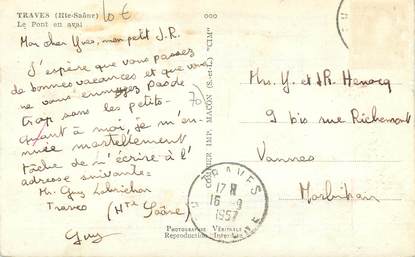 TRAVES (Hte-Saône)
Le Pont en aval
10 €
Mon cher Yves, mon petit J.R.
J'espère que vous passez
de bonnes vacances et que vous
ne vous ennuyez pas de
trop sans les petits.
Quant à moi, je m'en-
nuie mortellement
tâche de m'écrire à l'
adresse suivante:
Mr. Guy Labrichon
Traves (Hte Saône)
Guy
70
COMBIER IMP. MACON (S.-et-L.) "CIM"
Mrs. Y. et J.R. Henocq
9 bis rue Richemont
Vannes
Morbihan
TRAVES
17 H
16 - 9
1957
PHOTOGRAPHIE VÉRITABLE
Reproduction Interdite